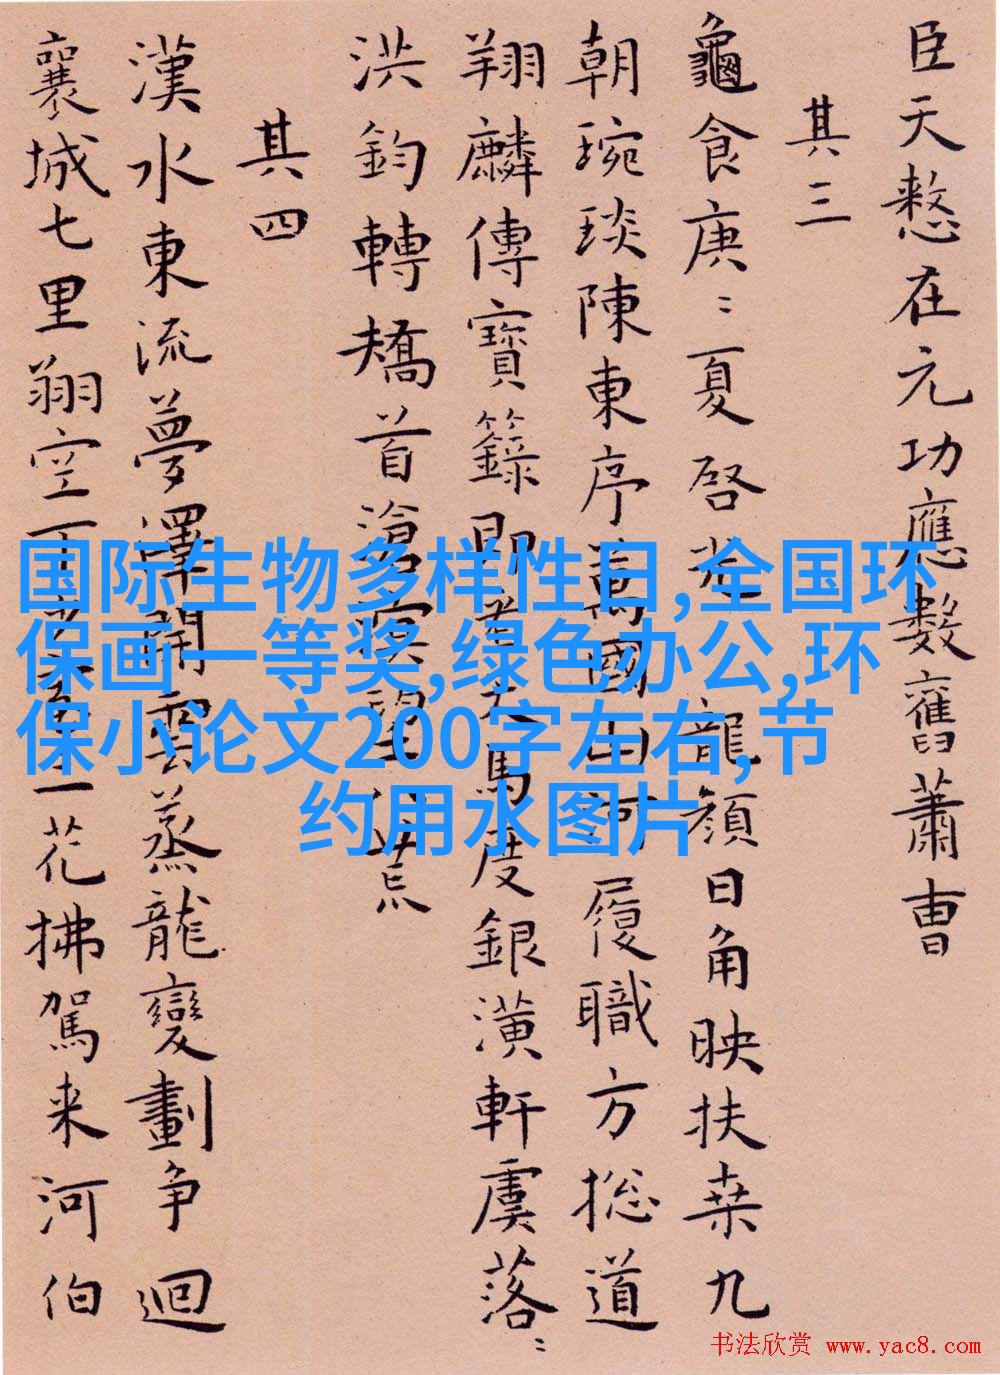 臣天在元功應數舊蕭曹
其三
龜食庚〻夏啓光龍顔日角映扶桒九
朝琬琰陳東序萬國山河履職方揔道
翔麟傳寶籙即看天馬度銀潢軒虞落〻
洪鈞轉矯首滄溟望八荒
其四
漢水東流夢澤開雲蒸龍變劃争迴
襄城七里翔空下一花拂駕来河伯
国际生物多样性日,全国环
保画一等奖,绿色办公,环
保小论文200字左右,节
约用水图片
书法欣赏 www.yac8.com